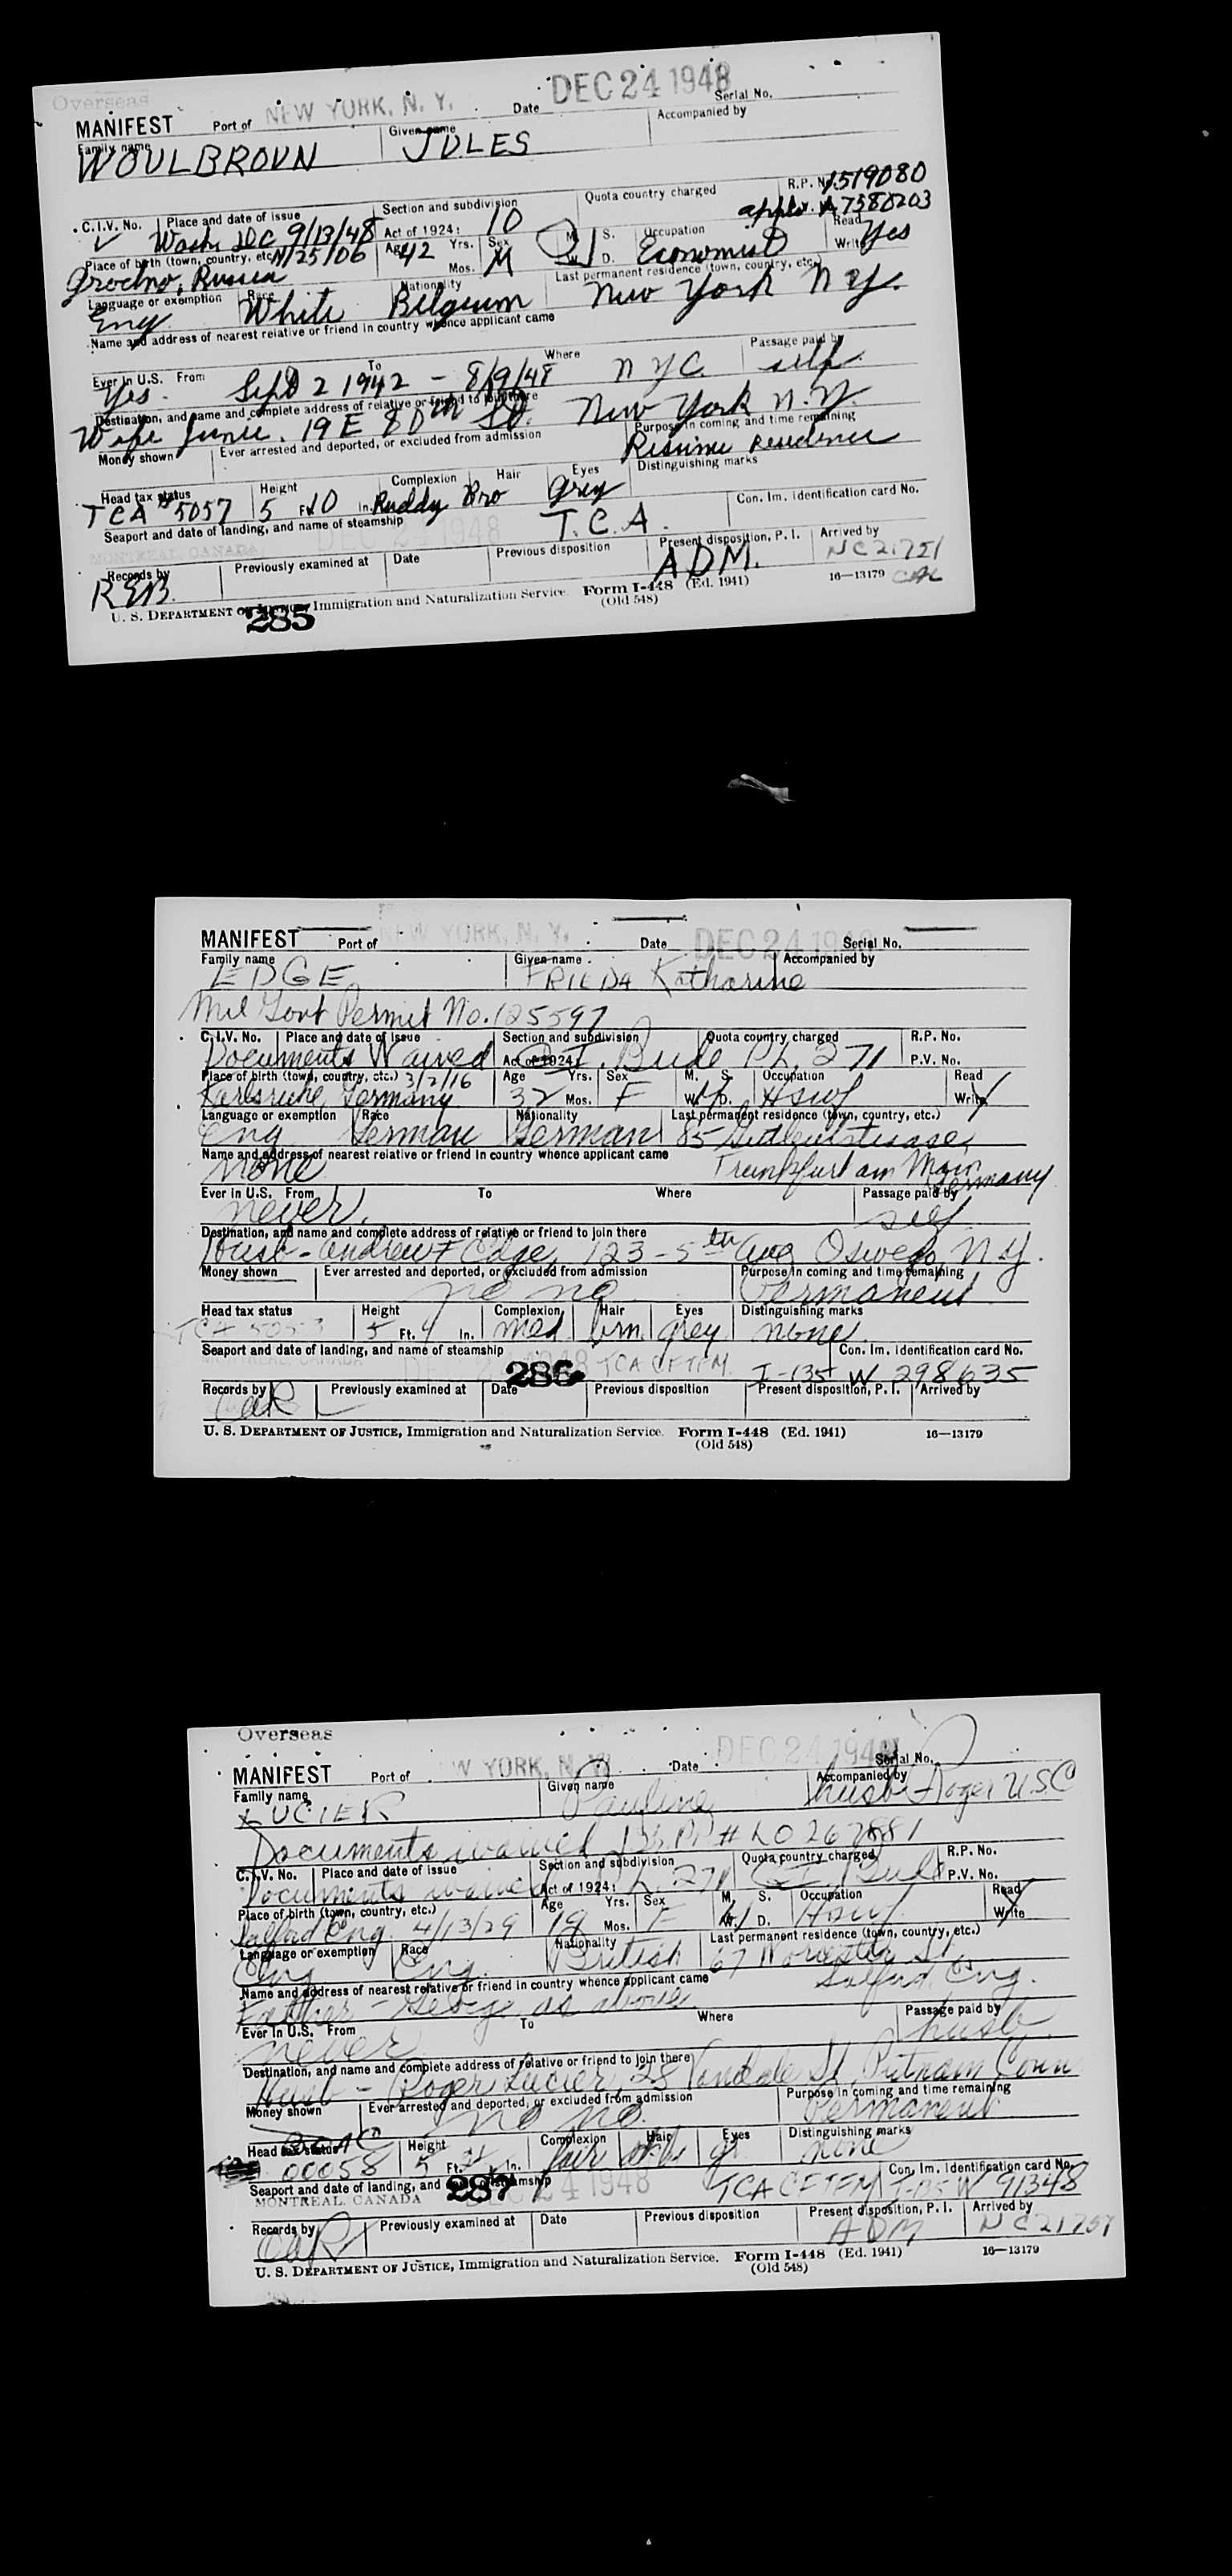 Overseas
MANIFEST Port of NEW YORK, N. Y. Date DEC 24 1948 Serial No.
Family name Given name Accompanied by
WOULBROUN JULES
Quota country charged R.P. No. 1519080
C.I.V. No. Place and date of issue Section and subdivision applx. A7380203
Wash DC 9/13/48 Act of 1924: 10
Place of birth (town, country, etc.) 11/25/06 Age 42 Yrs. Mos. Sex M M. S. W. D. Occupation Economist Read Write Yes
Grodno, Russia
Language or exemption Race Nationality Last permanent residence (town, country, etc.)
Eng White Belgium New York N Y.
Name and address of nearest relative or friend in country whence applicant came
Ever in U.S. From To Where Passage paid by
Yes. Sept 2 1942 - 8/9/48 N Y C. self
Destination, and name and complete address of relative or friend to join there
Wife 19 E 80th St. New York N.Y.
Money shown Ever arrested and deported, or excluded from admission Purpose in coming and time remaining
Resume Residence
Head tax status Height Complexion Hair Eyes Distinguishing marks
TCA #5057 5 Ft. 10 In. Ruddy Bro Grey
Seaport and date of landing, and name of steamship Con. Im. Identification card No.
MONTREAL, CANADA DEC 24 1948 T.C.A.
Records by Previously examined at Date Previous disposition Present disposition, P. I. Arrived by
REB. ADM. NC 21751
U. S. DEPARTMENT OF JUSTICE, Immigration and Naturalization Service. Form I-448 (Ed. 1941) 16—13179
(Old 548)
285
MANIFEST Port of NEW YORK, N. Y. Date DEC 24 1948 Serial No.
Family name Given name Accompanied by
EDGE FRIEDA Katharine
Mil Govt Permit No. 125597
C.I.V. No. Place and date of issue Section and subdivision Quota country charged R.P. No.
Documents Waived Act of 1924: G.I. Bride PL 271 P.V. No.
Place of birth (town, country, etc.) 3/2/16 Age Yrs. Sex M. S. Occupation Read
Karlsruhe Germany 32 Mos. F W. D. Hswf Write
Language or exemption Race Nationality Last permanent residence (town, country, etc.)
Eng German German 85
Name and address of nearest relative or friend in country whence applicant came
none Frankfurt am Main Germany
Ever in U.S. From To Where Passage paid by
never self
Destination, and name and complete address of relative or friend to join there
Husb - Andrew F Edge, 123 - 5th Ave Oswego N.Y.
Money shown Ever arrested and deported, or excluded from admission Purpose in coming and time remaining
no no Permanent
Head tax status Height Complexion Hair Eyes Distinguishing marks
TCA 5053 5 Ft. 4 In. med brn grey none
Seaport and date of landing, and name of steamship Con. Im. Identification card No.
MONTREAL, CANADA 286 TCA CFTFM I-135 W 298635
Records by Previously examined at Date Previous disposition Present disposition, P. I. Arrived by
CaR
U. S. DEPARTMENT OF JUSTICE, Immigration and Naturalization Service. Form I-448 (Ed. 1941) 16—13179
(Old 548)
Overseas
MANIFEST Port of W YORK, N. Y. Date DEC 24 1948 Serial No.
Family name Given name Accompanied by
LUCIER Pauline husb Roger U.S.C
Documents waived PP# LO 267881
C.I.V. No. Place and date of issue Section and subdivision Quota country charged R.P. No.
Documents waived Act of 1924: PL 271 G.I. Bride P.V. No.
Place of birth (town, country, etc.) Age Yrs. Sex M. S. Occupation Read
Salford Eng 4/13/29 19 Mos. F W. D. Hswf Write
Language or exemption Race Nationality Last permanent residence (town, country, etc.)
Eng Eng. British 67 Worcester St
Name and address of nearest relative or friend in country whence applicant came Salford, Eng.
Father - George as above
Ever in U.S. From To Where Passage paid by
never husb
Destination, and name and complete address of relative or friend to join there
Husb - Roger Lucier, 28 Vandale St, Putnam Conn
Money shown Ever arrested and deported, or excluded from admission Purpose in coming and time remaining
no no. Permanent
Head tax status Height Complexion Hair Eyes Distinguishing marks
00058 5 Ft. In. fair none
Seaport and date of landing, and name of steamship Con. Im. Identification card No.
MONTREAL, CANADA 287 DEC 24 1948 TCA CFTFM I-135 W 91348
Records by Previously examined at Date Previous disposition Present disposition, P. I. Arrived by
CaR ADM NC21751
U. S. DEPARTMENT OF JUSTICE, Immigration and Naturalization Service. Form I-448 (Ed. 1941) 16—13179
(Old 548)